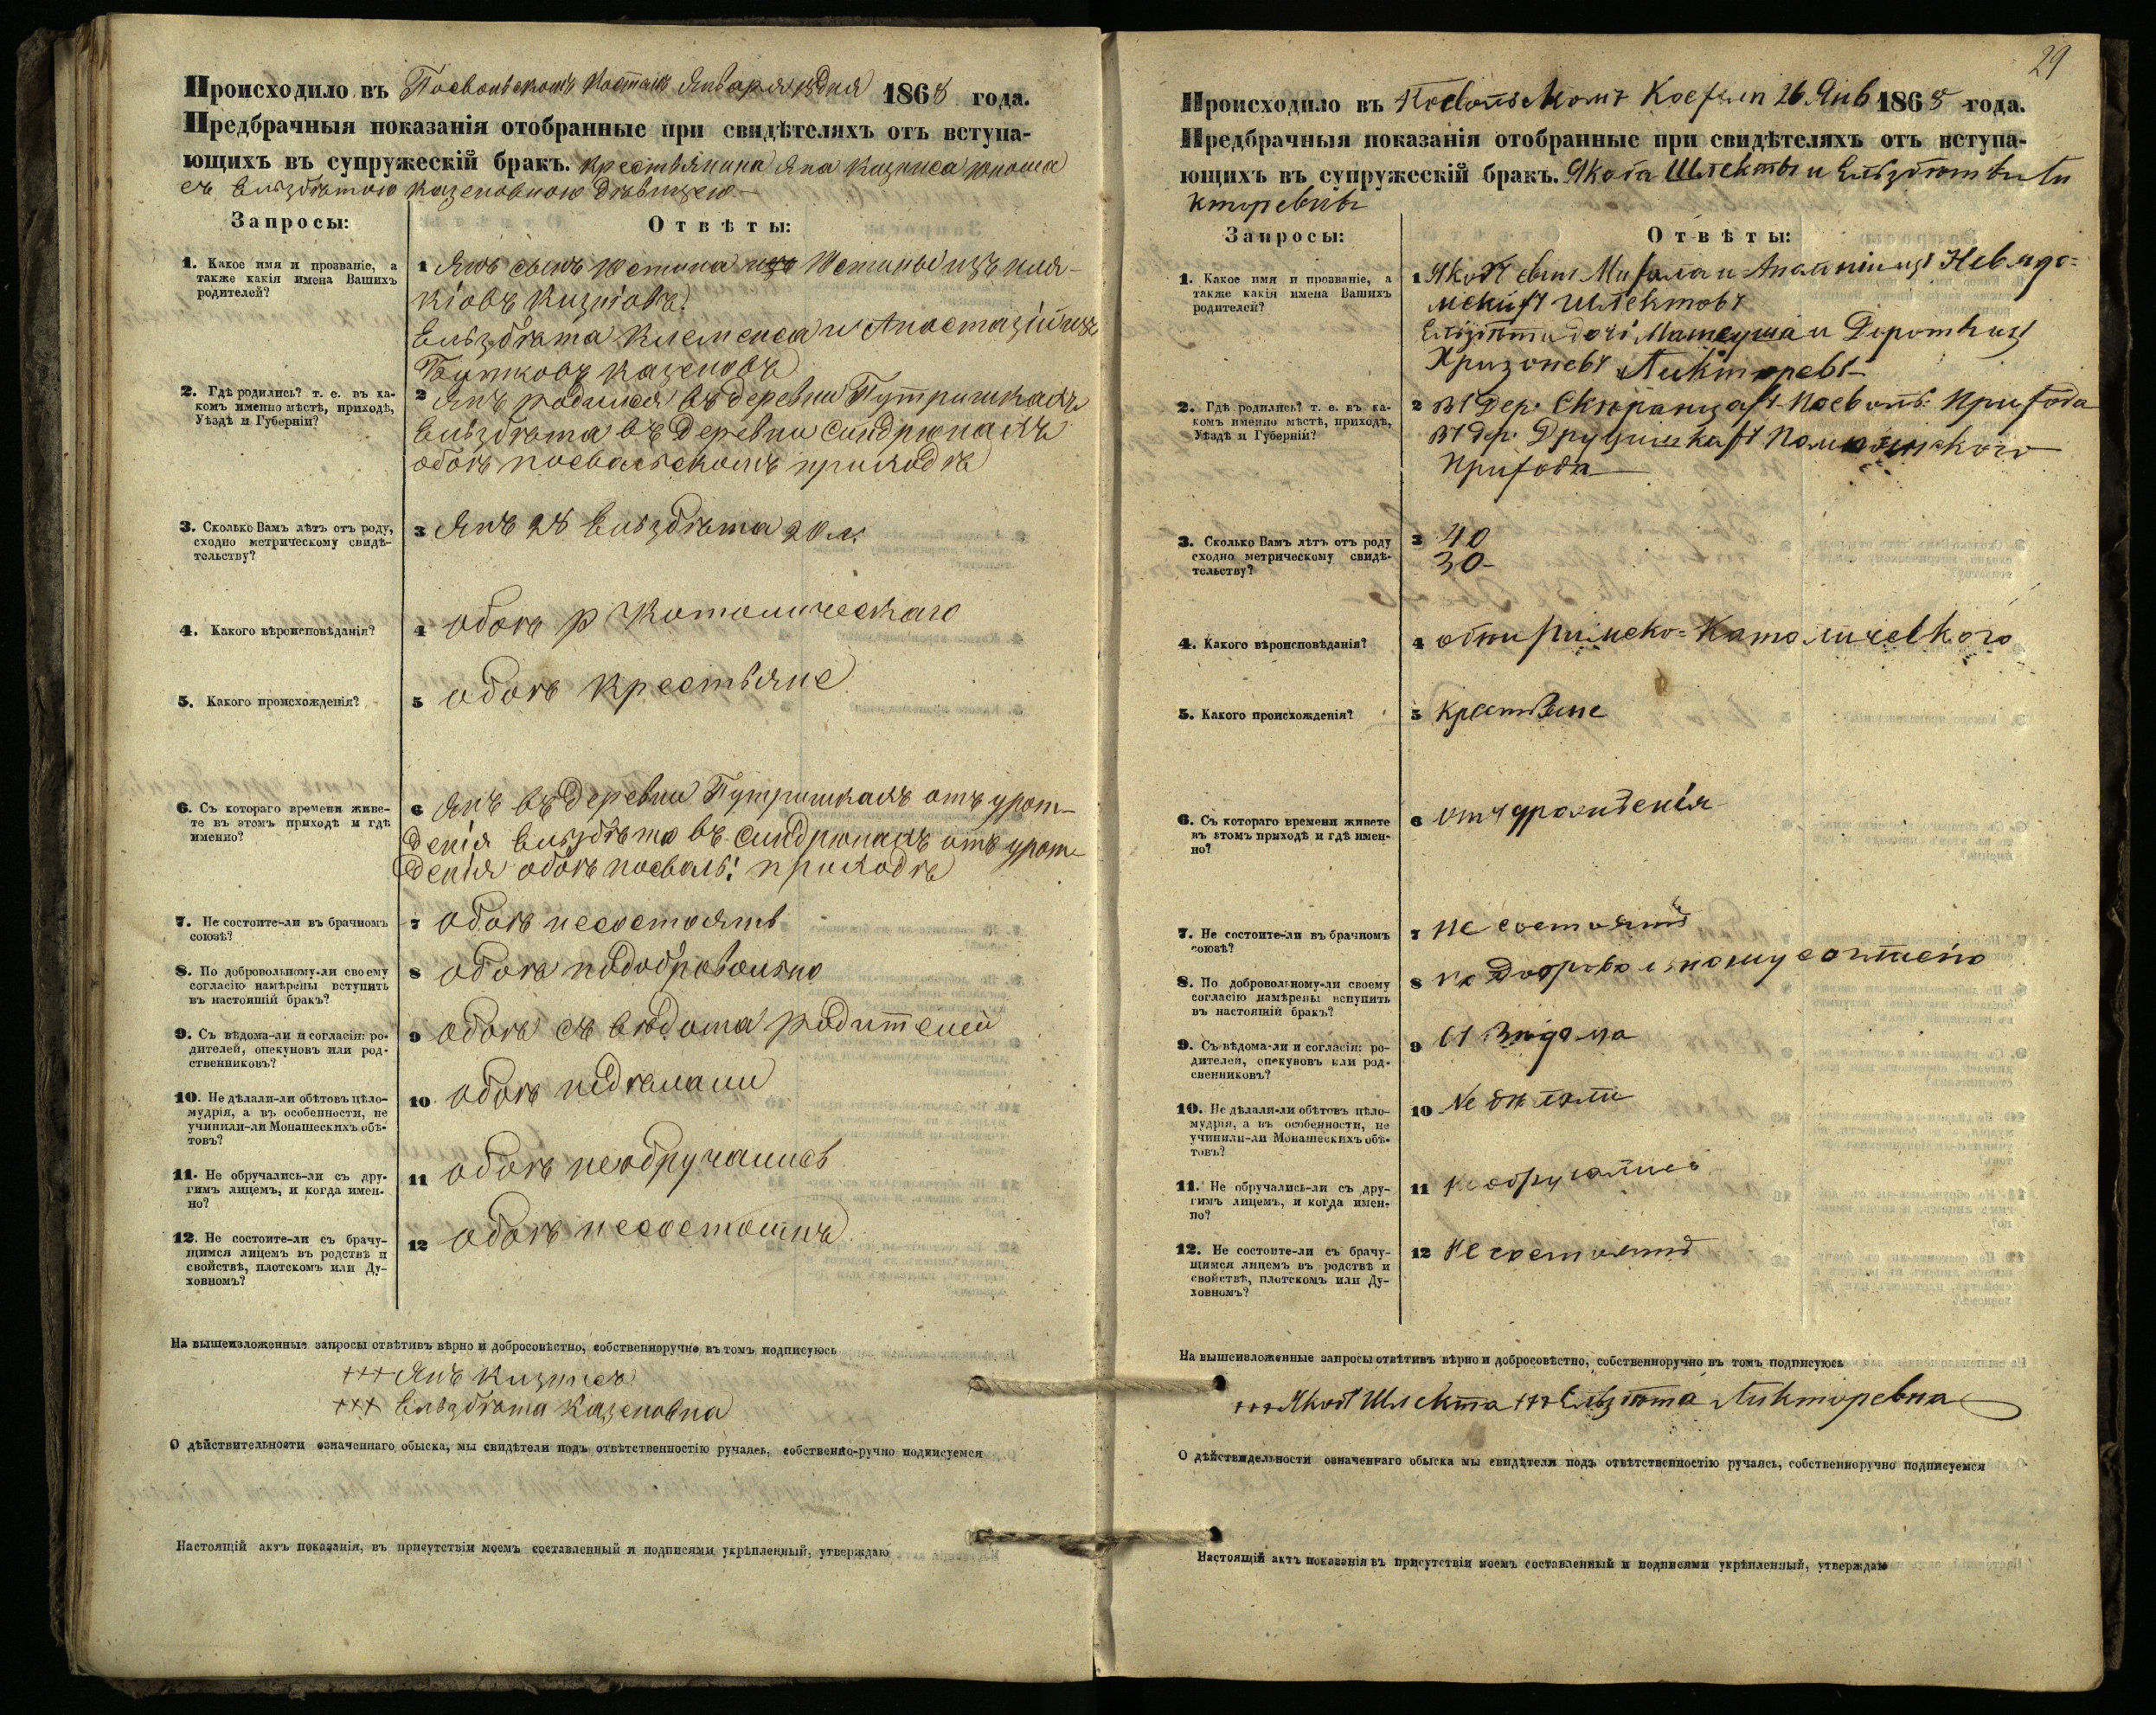 Происходило въ Посвольскомъ Костелѣ Января дня 1868 года.
Предбрачныя показанія отобранные при свидѣтеляхъ отъ вступа-
ющихъ въ супружескій бракъ. крестьянина Яна Кизниса юноша
съ Ельзбѣтою Казеновною Дѣвицею.—
Запросы:
Отвѣты:
1. Какое имя и прозваніе, а
также какія имена Вашихъ
родителей?
1 Янъ сынъ Юстина Юстины изъ
Кизнiовъ
Ельзбѣта Клеменса и Анастазiи изъ
Казеновъ
2. Гдѣ родились? т. е. въ ка-
комъ именно мѣстѣ, приходѣ,
Уѣздѣ и Губерніи?
2 Янъ родился въ деревни Путришкахъ
Ельзбѣта въ деревни Синдрюнахъ
обоѣ посвальскомъ приходѣ
3. Сколько Вамъ лѣтъ отъ роду,
сходно метрическому свидѣ-
тельству?
3 Янъ 28 Ельзбѣта 20 л.
4. Какого вѣроисповѣданія?
4 обоѣ р Католическаго
5. Какого происхожденія?
5 обоѣ крестьяне
6. Съ котораго времени живе-
те въ этомъ приходѣ и гдѣ
именно?
6 Янъ въ деревни Путришкахъ отъ урож-
денія Ельзбѣта въ Синдрюнахъ отъ урож-
денія обоѣ посваль: приходѣ
7. Не состоите-ли въ брачномъ
союзѣ?
7 обоѣ несостоятъ
8. По добровольному-ли своему
согласію намѣрены вступить
въ настоящій бракъ?
8 обоѣ подобровольно
9. Съ вѣдома-ли и согласія: ро-
дителей, опекуновъ или род-
ственниковъ?
9 обоѣ съ вѣдома родителей
10. Не дѣлали-ли обѣтовъ цѣло-
мудрія, а въ особенности, не
учинили-ли Монашескихъ обѣ-
товъ?
10 обоѣ недѣлали
11. Не обручались-ли съ дру-
гимъ лицемъ, и когда имен-
но?
11 обоѣ необручались
12. Не состоите-ли съ брачу-
щимся лицемъ въ родствѣ и
свойствѣ, плотскомъ или Ду-
ховномъ?
12 обоѣ несостоятъ
На вышеизложенные запросы отвѣтивъ вѣрно и добросовѣстно, собственноручно въ томъ подписуюсь
+++ Янъ Кизнисъ
+++ Ельзбѣта Казеновна
О дѣйствительности означеннаго обыска, мы свидѣтели подъ отвѣтственностію ручаясь, собственно-ручно подписуемся
Настоящій актъ показанія, въ присутствіи моемъ составленный и подписями укрѣпленный, утверждаю
29
Происходило въ Костелѣ 26 Янв 1868 года.
Предбрачныя показанія отобранные при свидѣтеляхъ отъ вступа-
ющихъ въ супружескій бракъ. Якоба Шлекты и Ельзбѣты Ли
кторевны
Запросы:
Отвѣты:
1. Какое имя и прозваніе, а
также какія имена Вашихъ
родителей?
1 Якобъ сынъ Михала и изъ
Шлектовъ
Ельзбѣта дочь Матеуша и Доротеи изъ
Ликторевъ
2. Гдѣ родились? т. е. въ ка-
комъ именно мѣстѣ, приходѣ,
Уѣздѣ и Губерніи?
2 въ Дер. Посволь: Прихода
въ Дер. Друцишкахъ
Прихода
3. Сколько Вамъ лѣтъ отъ роду
сходно метрическому свидѣ-
тельству?
3 40
30
4. Какого вѣроисповѣданія?
4 обои Римско-Католическаго
5. Какого происхожденія?
5 Крестьяне
6. Съ котораго времени живете
въ этомъ приходѣ и гдѣ имен-
но?
6 отъ урожденія
7. Не состоите-ли въ брачномъ
союзѣ?
7 не состоятъ
8. По добровольному-ли своему
согласію намѣрены вступить
въ настоящій бракъ?
8 по добровольному согласію
9. Съ вѣдома-ли и согласія: ро-
дителей, опекуновъ или род-
свенниковъ?
9 съ вѣдома
10. Не дѣлали-ли обѣтовъ цѣло-
мудрія, а въ особенности, не
учинили-ли Монашескихъ обѣ-
товъ?
10 не дѣлали
11. Не обручались-ли съ дру-
гимъ лицемъ, и когда имен-
но?
11 не обручались
12. Не состоите-ли съ брачу-
щимся лицемъ въ родствѣ и
свойствѣ, плотскомъ или Ду-
ховномъ?
12 не состоятъ
На вышеизложенные запросы отвѣтивъ вѣрно и добросовѣстно, собственноручно въ томъ подписуюсь
+++ Якобъ Шлекта +++ Ельзбѣта Ликторевна
О дѣйствидельности означеннаго обыска мы свидѣтели подъ отвѣтственностію ручаясь, собственноручно подписуемся
Настоящій актъ показанія въ присутствіи моемъ составленный и подписями укрѣпленный, утверждаю